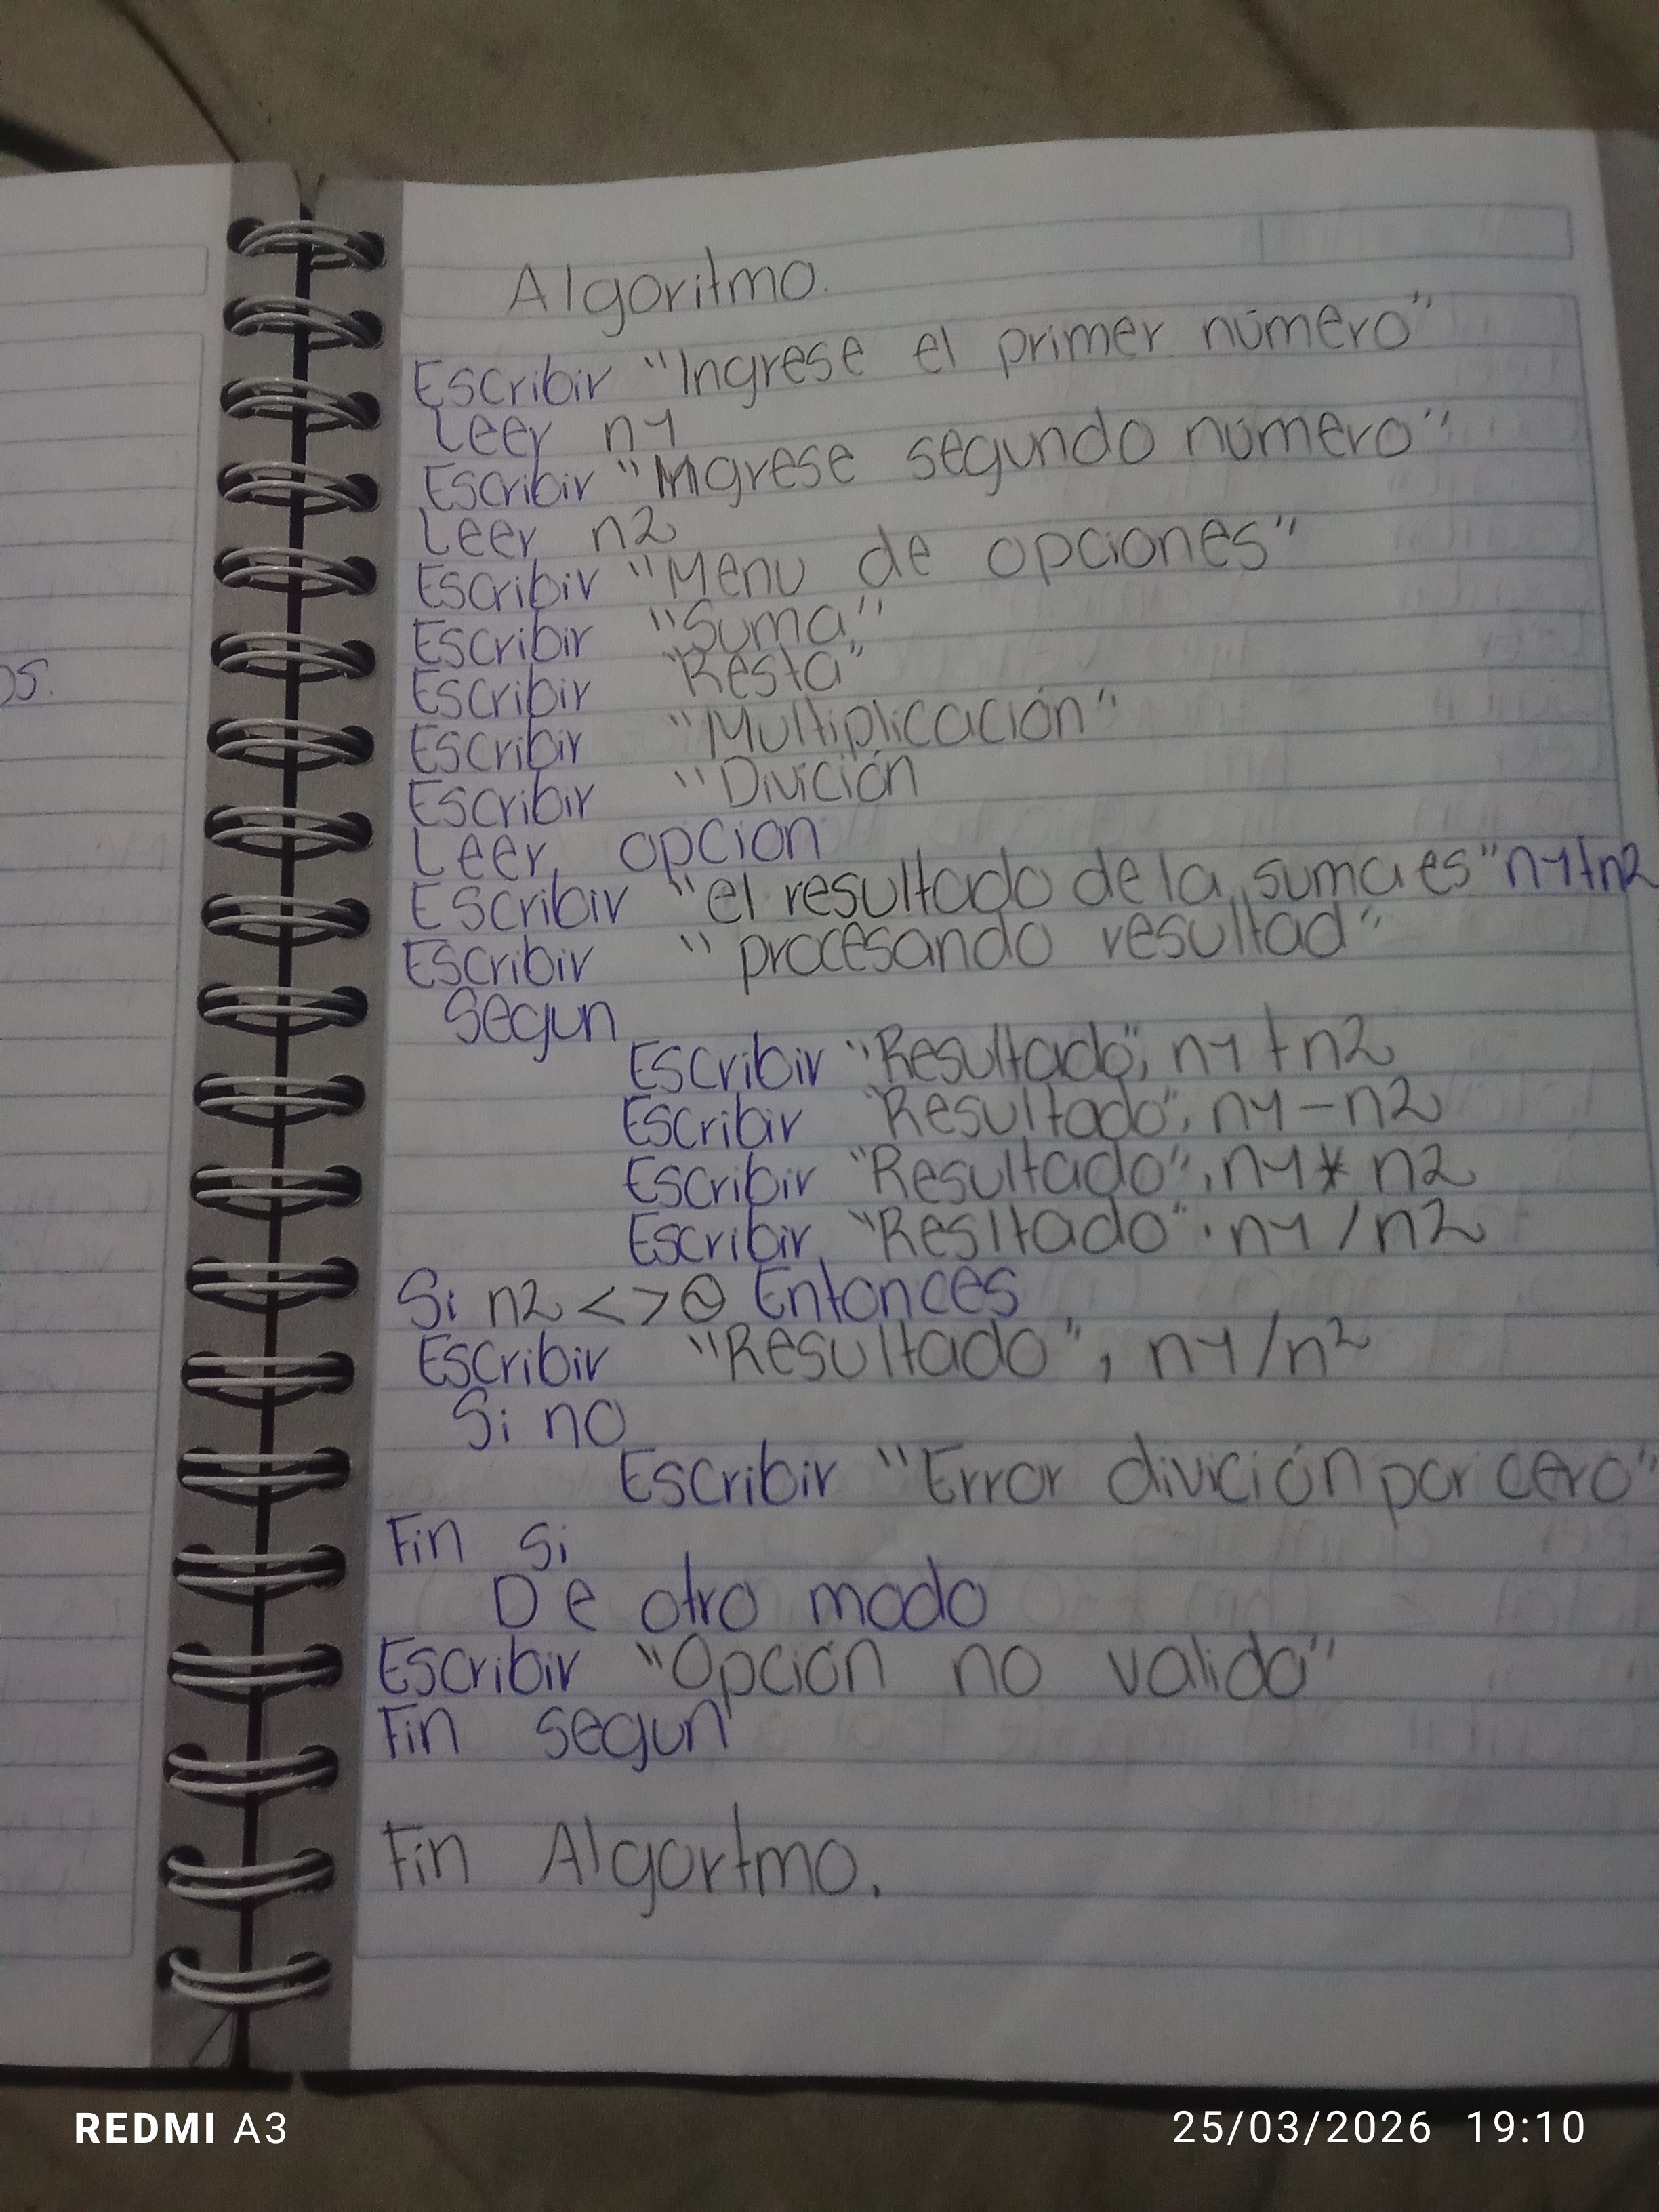 Algoritmo.
Escribir "Ingrese el primer número"
Leer n1
Escribir "Ingrese segundo número"
Leer n2
Escribir "Menu de opciones"
Escribir "Suma"
Escribir "Resta"
Escribir "Multiplicación"
Escribir "Divición
Leer opcion
Escribir "el resultado de la suma es" n1+n2
Escribir "procesando resultad"
Segun
Escribir "Resultado", n1+n2
Escribir "Resultado", n1-n2
Escribir "Resultado", n1* n2
Escribir "Resltado". n1/n2
Si n2 <> 0 Entonces
Escribir "Resultado", n1/n2
Si no
Escribir "Error divición por cero"
Fin Si
De otro modo
Escribir "Opción no valida"
Fin segun
Fin Algortmo.
os.
REDMI A3
25/03/2026 19:10